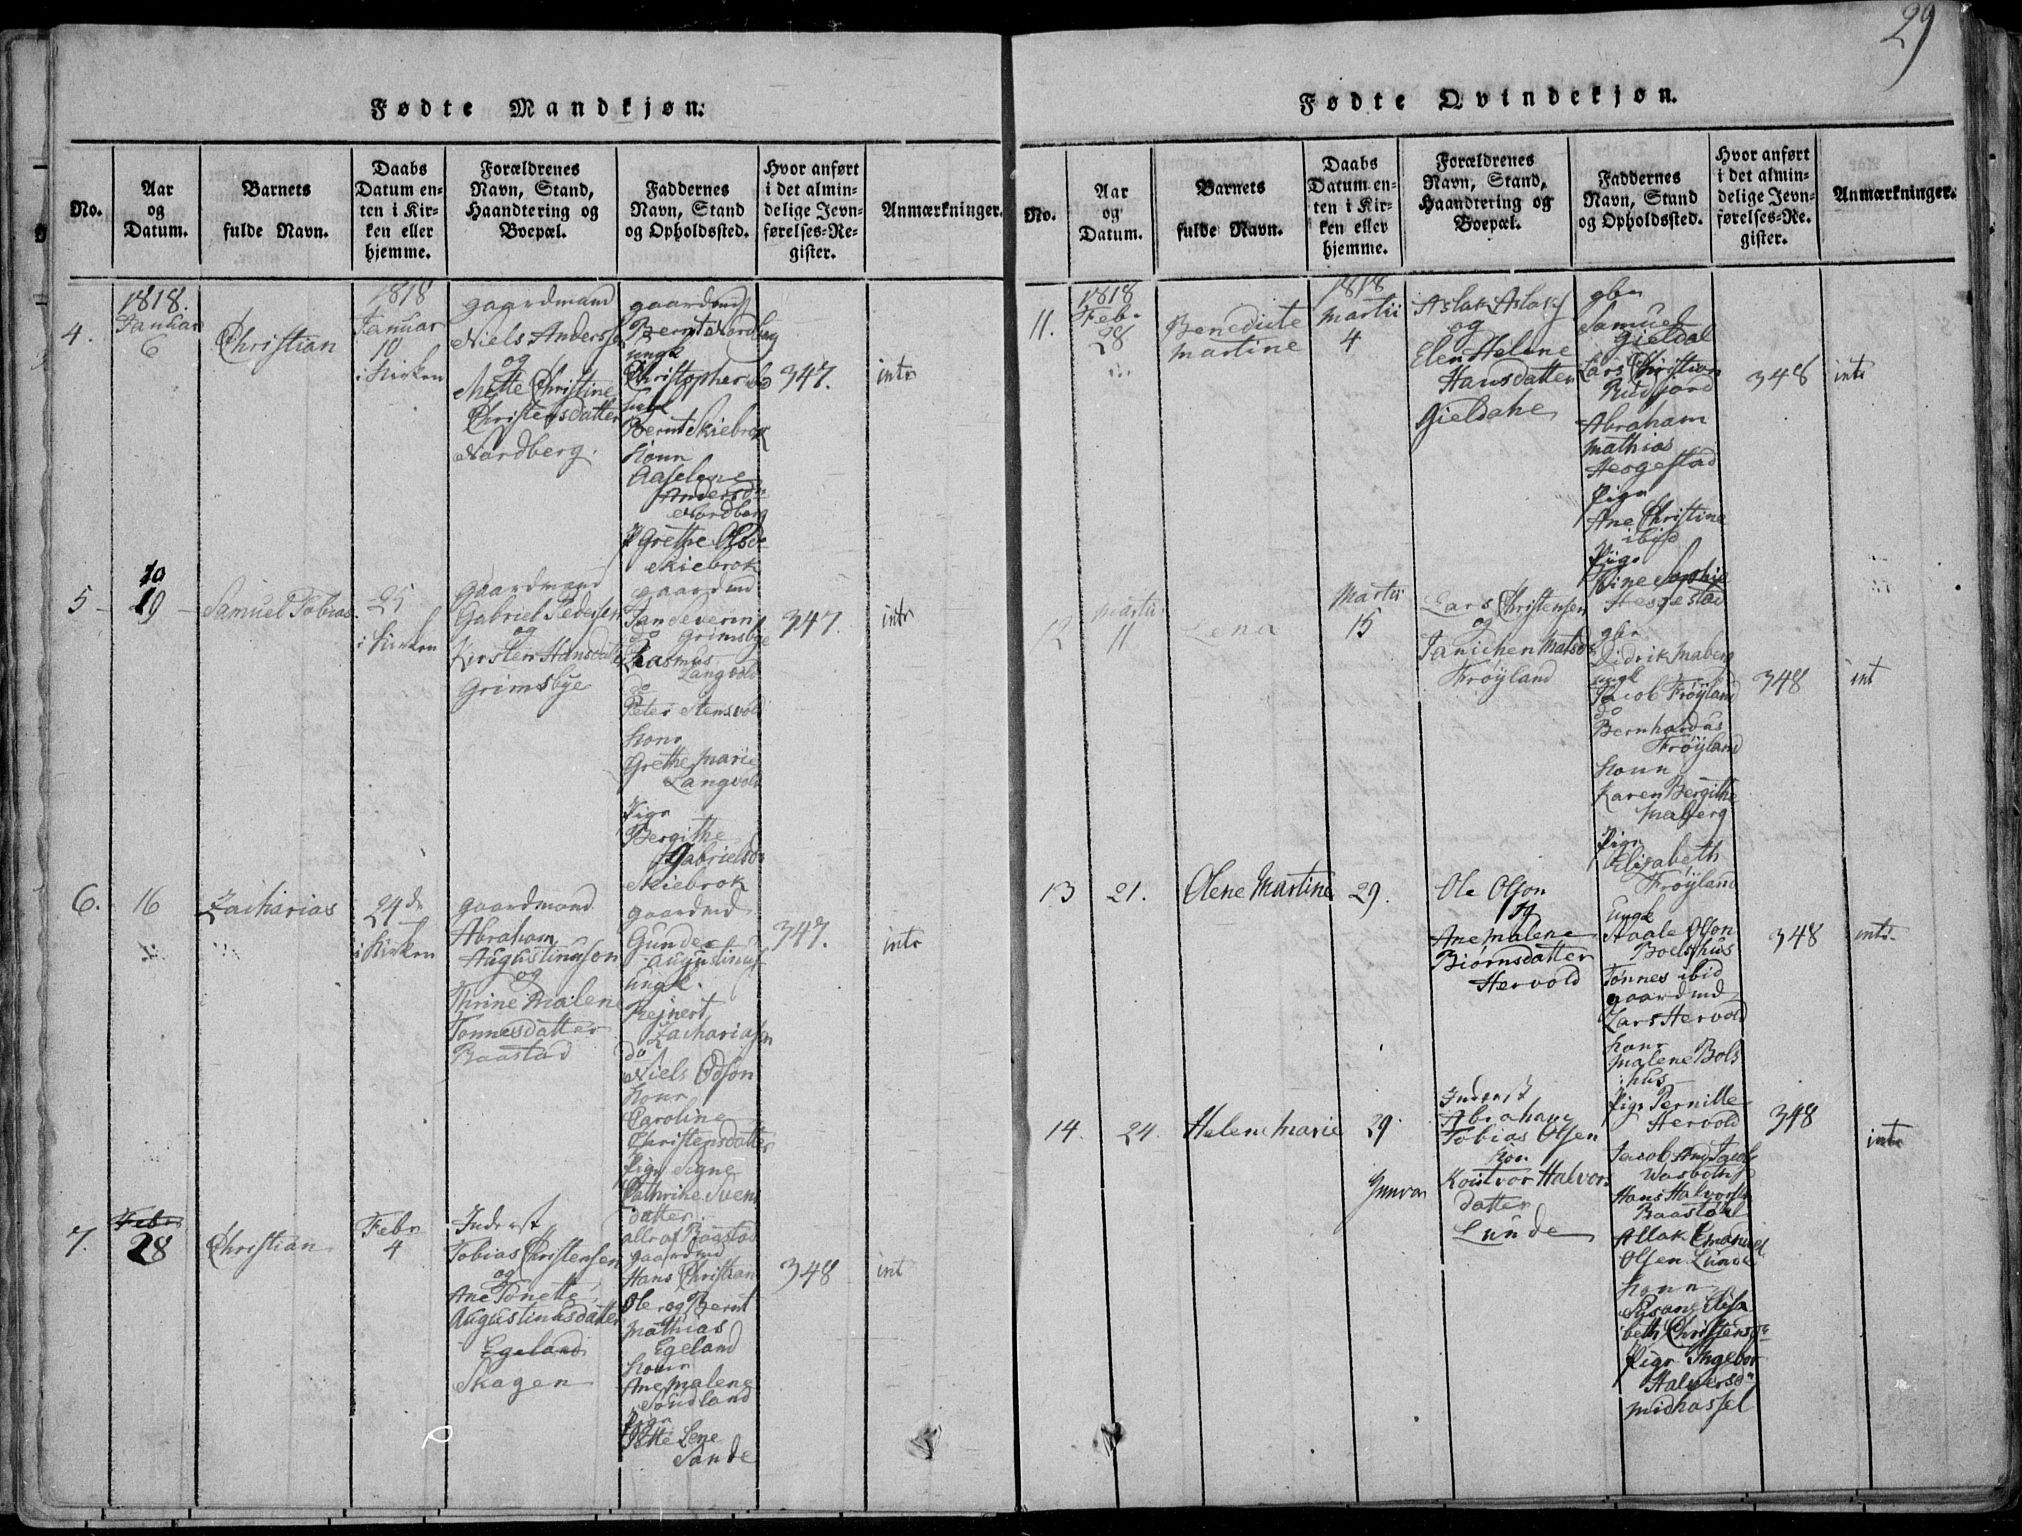 29
Fødte Mandkjøn:
No.
Aar
og
Datum.
Barnets
fulde Navn.
Daabs
Datum en-
ten i Kir-
ken eller
hjemme.
Forældrenes
Navn, Stand,
Haandtering og
Boepæl.
Faddernes
Navn, Stand
og Opholdssted.
Hvor anført
i det almin-
delige Jevn-
førelses-Re-
gister.
Anmærkninger.
4.
1818.
Januar
6
Christian
1818
Januar
10
i Kirken
gaardmand
Niels Anderss
og
Mette Christine
Christensdatter
Nordberg.
gaardmd
Bernt Nordberg
ungk
Christopher ibd
Bernt Skiebrok
konn
Aaselene
Andersdr
Nordberg
P Grethe Olsdr
Skiebrok
347.
intr
5
10
19
Samuel Tobias
25
i Kirken
gaardmand
Gabriel Pedersen
og
Kirsten Hansdatter
Grimsbye
gaardmd
Jan Severin
do Grimsbye
Rasmus
Langvold
do
Peter Stensvold
konr
Grethe Marie
Langvold
Pigr
Bergithe
Gabrielsdr
Skiebrok
347.
intr
6.
16
Zacharias
24de
i Kirken
gaardmand
Abraham
Augustinuson
og
Thrine Malene
Tonnesdatter
Baastad
gaardmd
Gunder
Augustinus
ungk.
Rejnert
Zachariasn
do
Niels Odson
konr
Caroline
Christensdatter
Pigr Signe
Cathrine Svens
datter
alle af Baastad
347.
intr
7.
Febr
28
Christian
Febr
4
Inderst
Tobias Christensen
og
Ane Tonette
Augustinusdatter
Egeland
Skagen
gaardmd
Hans Christian
Ole og Bernt
Mathias
Egeland
konr
Ane Malene
Soudland
Pigr
Lene
Sande
348
int
Fødte Qvindekjøn.
No.
Aar
og
Datum.
Barnets
fulde Navn.
Daabs
Datum en-
ten i Kir-
ken eller
hjemme.
Forældrenes
Navn, Stand,
Haandtering og
Boepæl.
Faddernes
Navn, Stand
og Opholdssted.
Hvor anført
i det almin-
delige Jevn-
førelses-Re-
gister.
Anmærkninger.
11.
1818
Feb.
28
Benedicte
Martine
1818
Martii
4
Aslak Aslaks
og
Elen Helene
Hansdatter
Gieldahe
gbr
Samuel
Gieldal
Lars Christian
Rudjord
Abraham
Mathias
Hesgestad
Pigr
Ane Christine
ibid
Pigr
Trine Sophie
Hesgestad
348
intr
12
Martii
11
Lena
Martii
15
Lars Christensen
og
Janichen Matsdr
Frøyland
gbr
Didrik Maberg
ungk
Jacob Frøyland
do
Bernhardus
Frøyland
konn
Karen Bergithe
Maberg
Pigr
Elisabeth
Frøyland
348
int
13
21.
Olene Martine
29.
Ole Olson
og
Ane Malene
Biørnsdatter
Hervold
Ungk
Staale Olson
Boelshus
Tonnes ibid
gaardmd
Lars Hervold
konr
Malene Bols
hus
Pigr Pernille
Hervold
348
intr
14.
24.
Helene Marie
29.
Inderst
Abraham
Tobias Olsen
Gunvor
Halvors
datter
Lunde
Hans Halvorsen
Baastad
Aslak Emanuel
Olsen Lunde
konn
Susane Elisa
beth Christensdr
Pigr Ingebor
Halversdr
Midhassel
348
intr